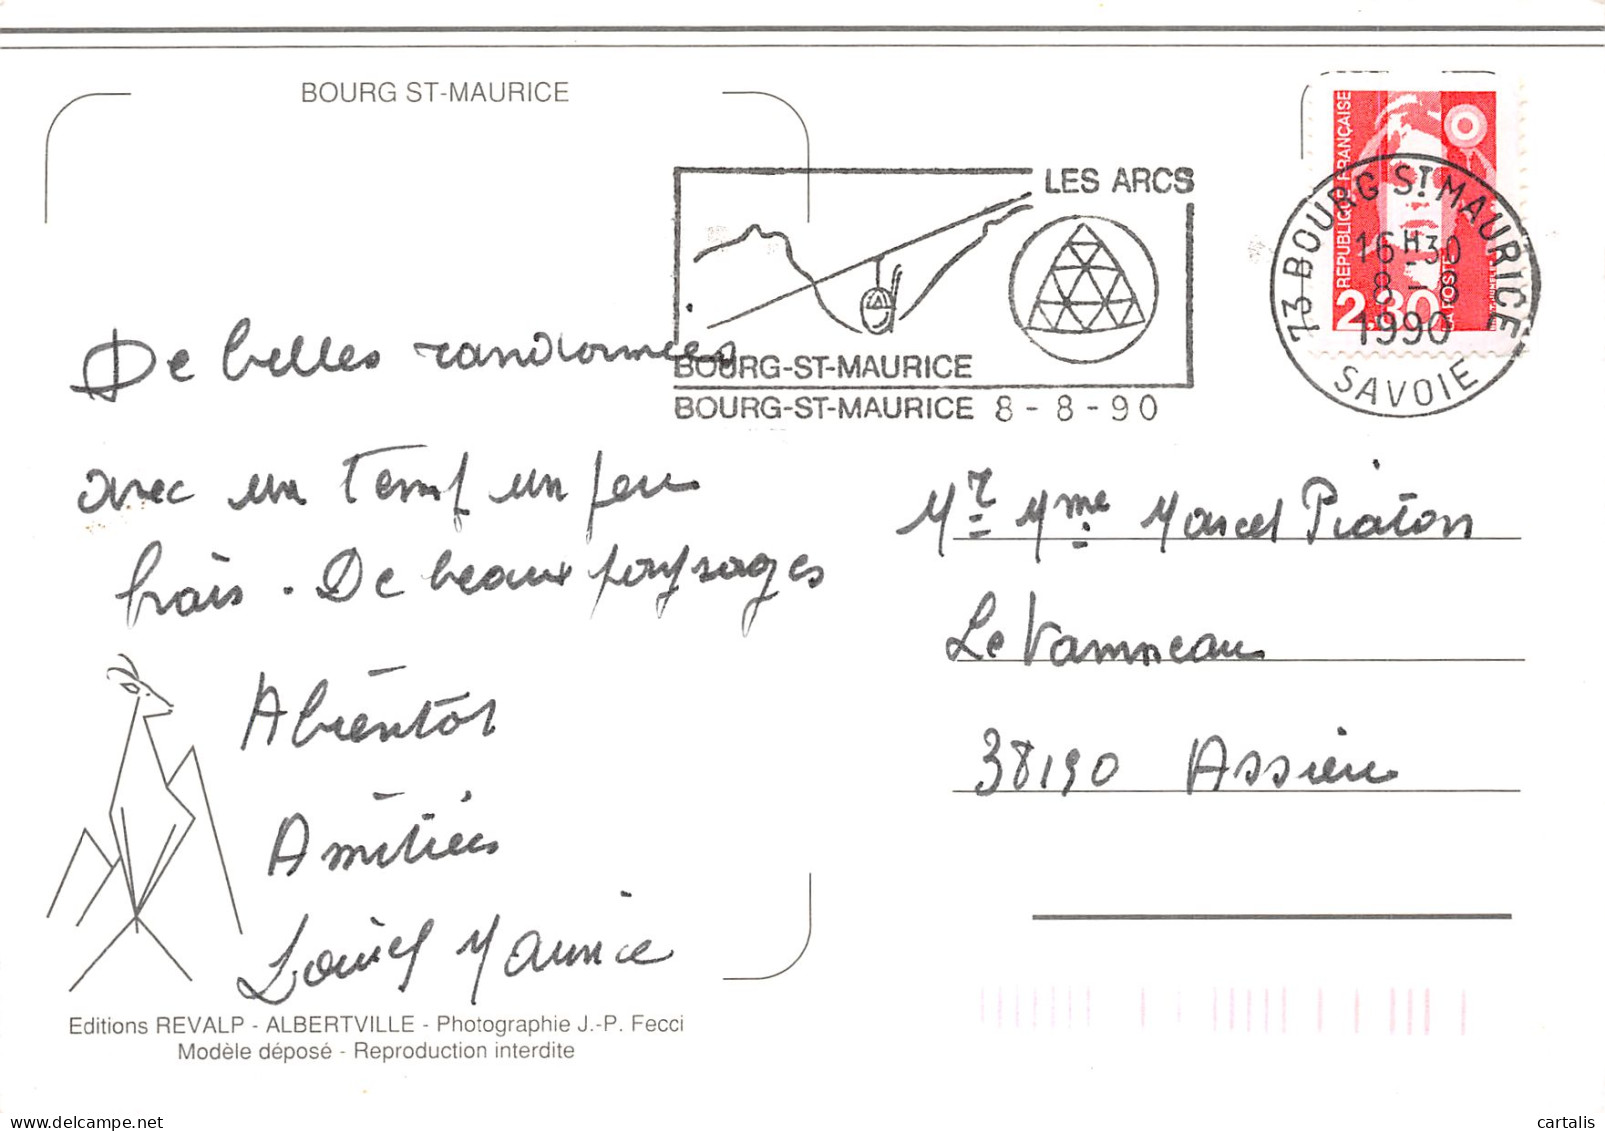 BOURG ST-MAURICE
LES ARCS
BOURG-ST-MAURICE
BOURG-ST-MAURICE 8 - 8 - 90
REPUBLIQUE FRANÇAISE
2,30
LA POSTE
73 BOURG ST MAURICE
16H30
8 - 8
1990
SAVOIE
De belles randonnées
avec un temps un peu
frais. De beaux paysages
Abientôt
Amitiés
Maurice
Mr Mme Marcel Piaton
Le Vanneau
38190 Assieu
Editions REVALP - ALBERTVILLE - Photographie J.-P. Fecci
Modèle déposé - Reproduction interdite
cartalis